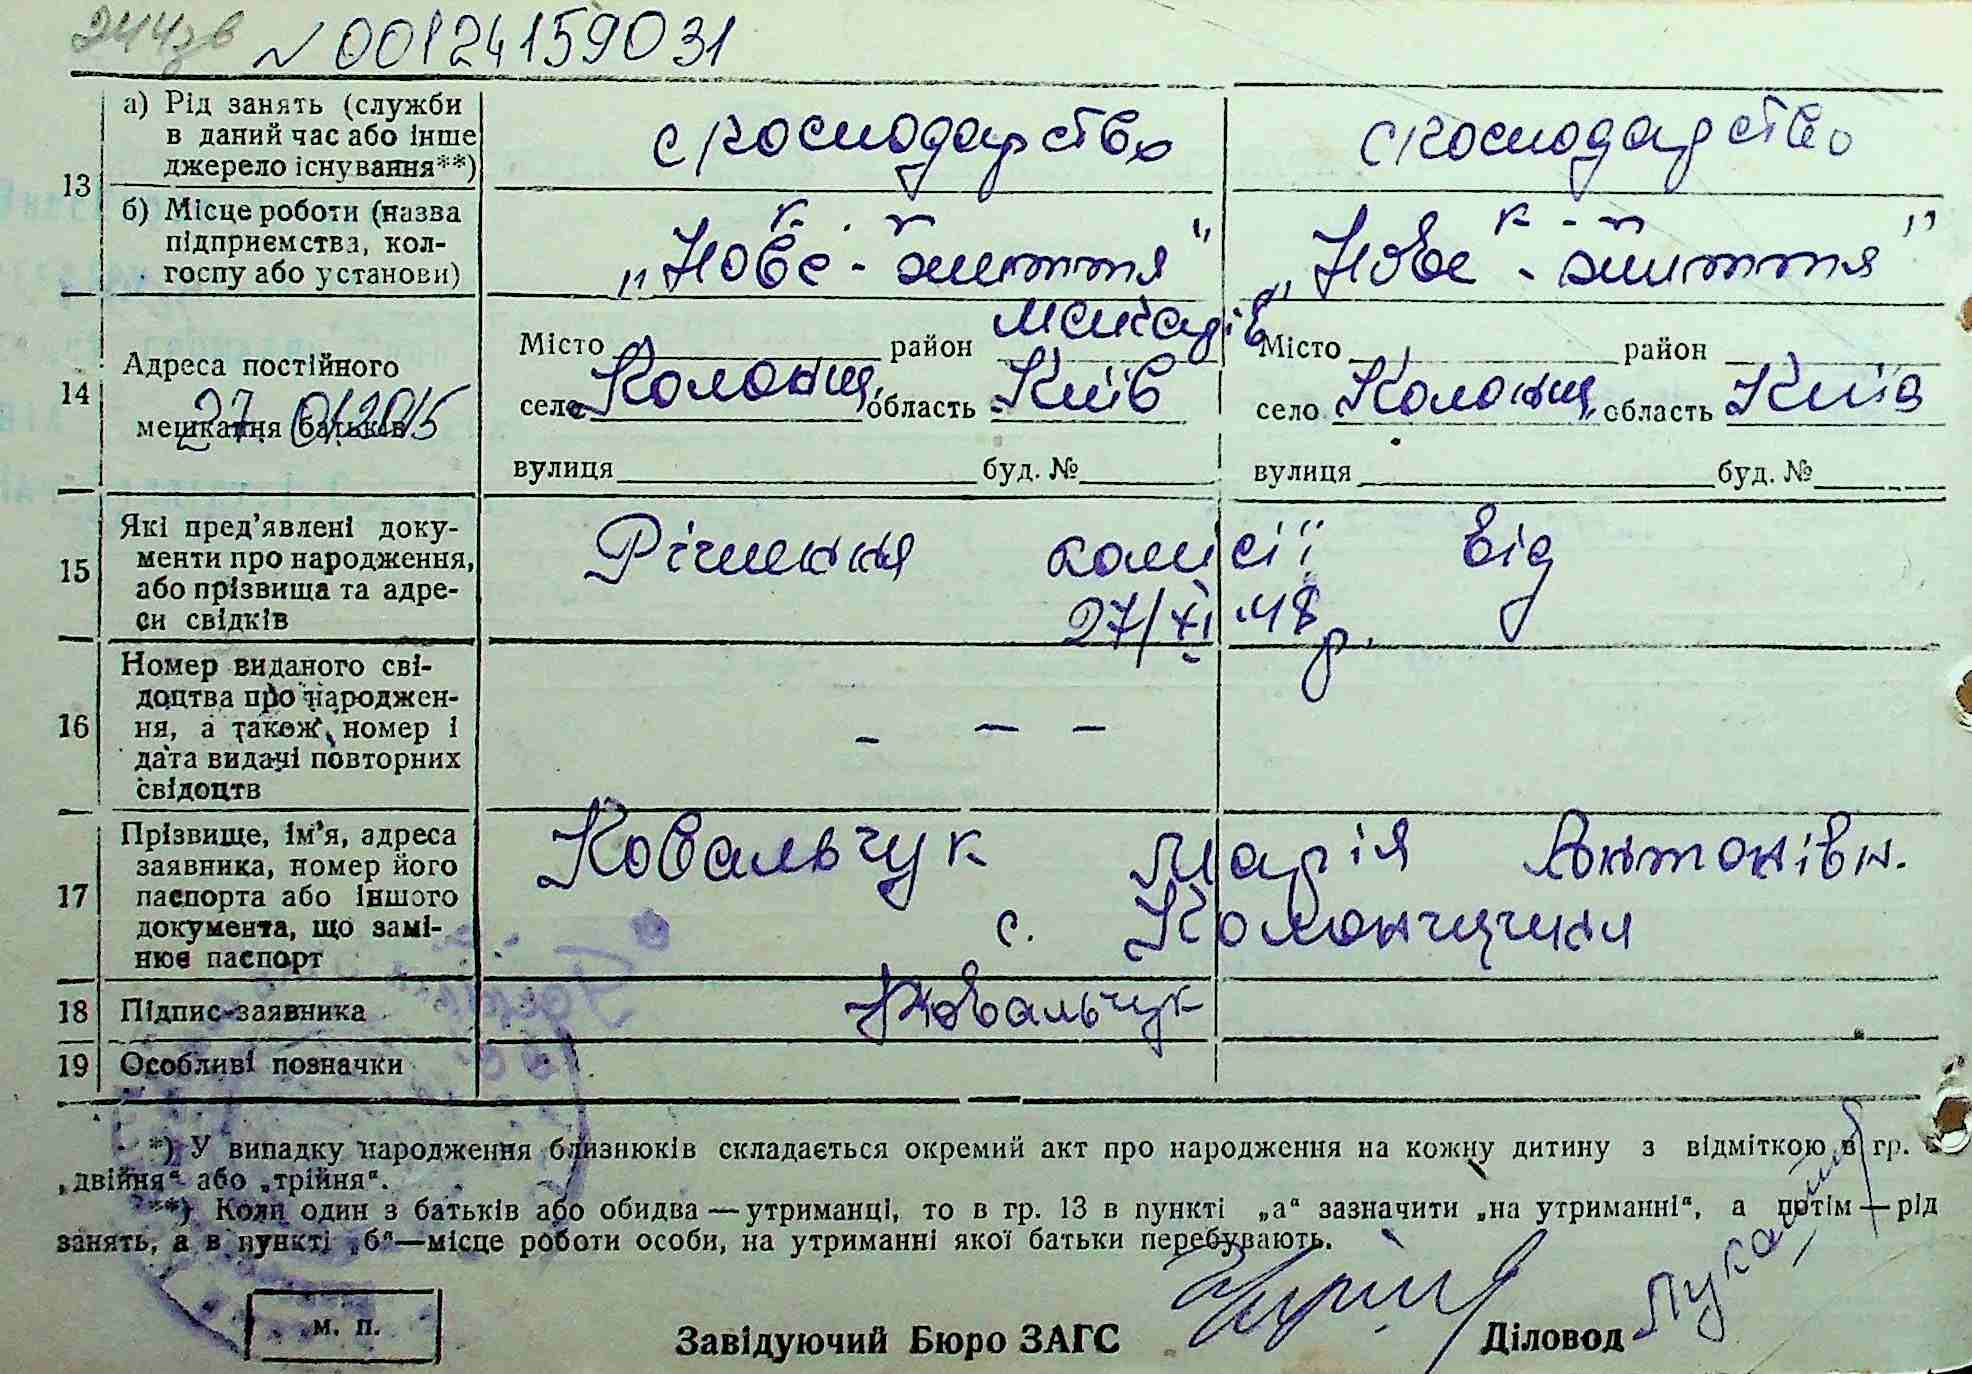 244зв N 00124159031
а) Рід занять (служби
в даний час або інше
джерело існування**)
с господарство с господарство
13
б) Місце роботи (назва
підприємства, кол-
госпу або установи)
к - п к - п
„Нове - життя" „Нове - життя"
14
Адреса постійного
мешкання батьків
27 012015
Місто район Макарів Місто район
село Колонщ. область Київ село Колонщ. область Київ
вулиця буд. № вулиця буд. №
15
Які пред’явлені доку-
менти про народження,
або прізвища та адре-
си свідків
Рішення комісії від
27/XI 48 р.
16
Номер виданого сві-
доцтва про народжен-
ня, а також номер і
дата видачі повторних
свідоцтв
– – –
17
Прізвище, ім’я, адреса
заявника, номер його
паспорта або іншого
документа, що замі-
нює паспорт
Ковальчук Марія Антонівн.
с. Колонщина
18 Підпис заявника Ковальчук
19 Особливі позначки
*) У випадку народження близнюків складається окремий акт про народження на кожну дитину з відміткою в гр.
„двійня“ або „трійня“.
**) Коли один з батьків або обидва — утриманці, то в гр. 13 в пункті „а“ зазначити „на утриманні“, а потім — рід
занять, а в пункті „б“ — місце роботи особи, на утриманні якої батьки перебувають.
м. п.
Завідуючий Бюро ЗАГС Діловод